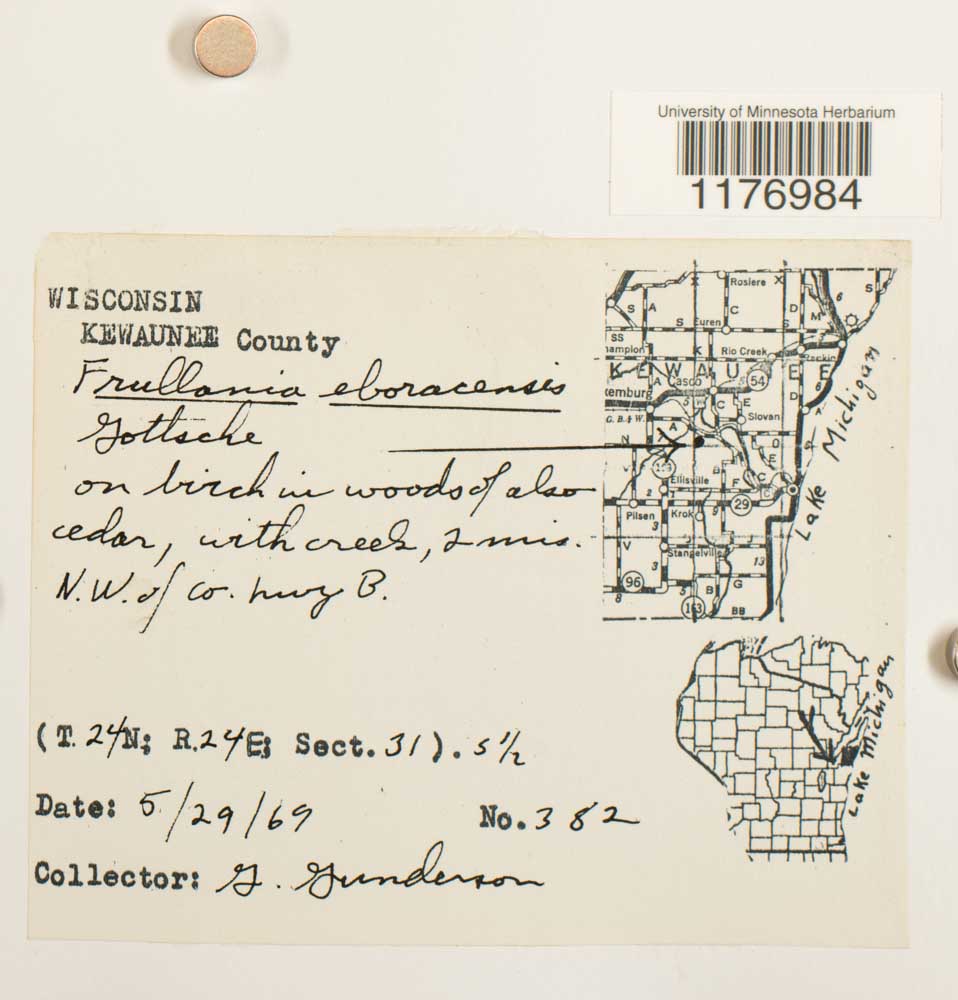 University of Minnesota Herbarium
1176984
WISCONSIN
KEWAUNEE County
Frullania eboracensis
Gottsche
on birch in woods of also
cedar, with creek, 2 mis.
N.W. of co. hwy B.
(T. 24N; R. 24E; Sect. 31). S 1/2
Date: 5/29/69 No. 382
Collector: G. Gunderson
Rosiere X
S A C D 6 S
S Euren S M
SS
hampion K Rio Creek
KEWAUNEE
A Casco 54 6
xemburg C E D
G.B.& W. A Slovan A
N O
Ellisville B F E C
2
Pilsen Krok 9 29
3
V Stangelville 13
96 3 G
8 163 B BB
Lake Michigan
Lake Michigan